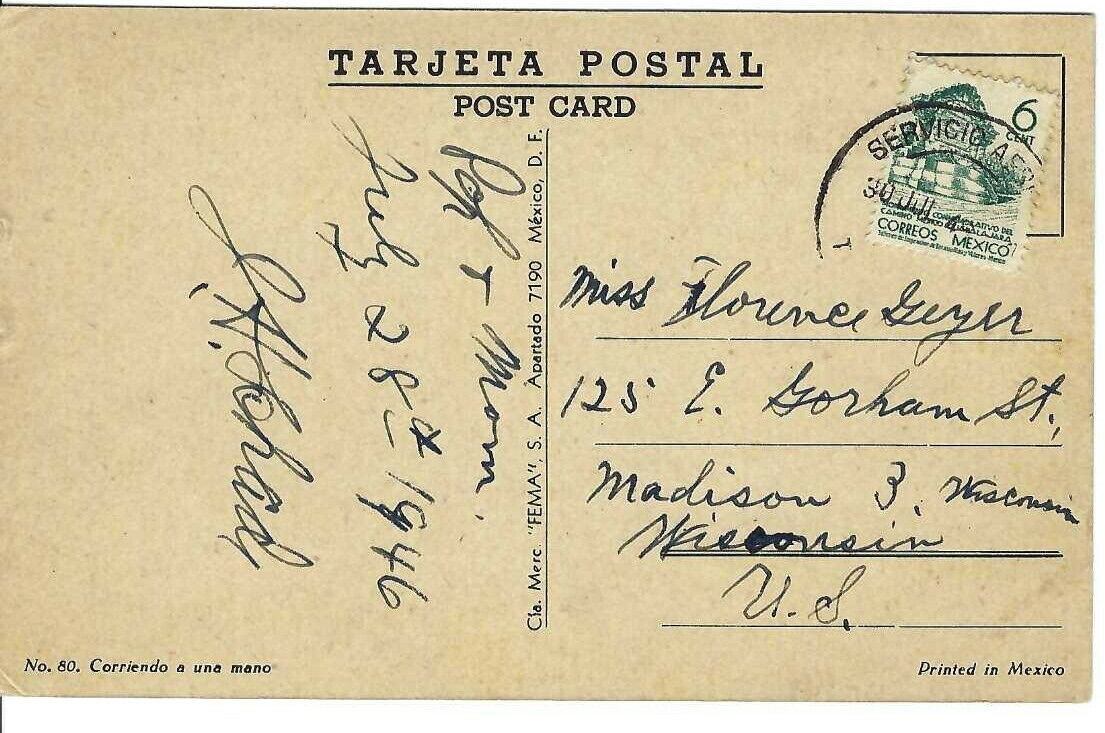 TARJETA POSTAL
POST CARD
6
CENT
SERVICIO
30 JUL 4
CONMEMORATIVO DEL
CAMINO MEXICO GUADALAJARA
CORREOS MEXICO
Pop & Mom.
July 28th 1946
Cía. Merc. "FEMA", S. A. Apartado 7190 México, D. F.
Miss Florence Geyer
125 E. Gorham St.,
Madison 3, Wisconsin
Wisconsin
U.S.
No. 80. Corriendo a una mano
Printed in Mexico